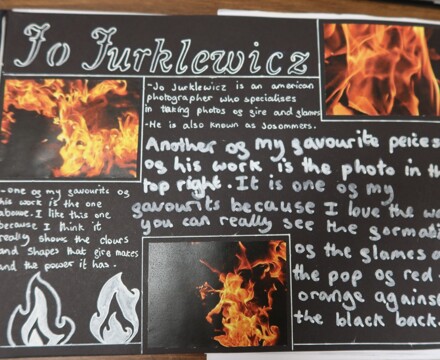 Jo Jurklewicz
-Jo Jurklewicz is an american
photographer who specialises
in taking photos of fire and flames
-He is also known as Josommers.
Another of my favourite peices
of his work is the photo in th
top right. It is one of my
favourits because I love the wa
you can really see the formati
of the flames a
the pop of red
orange against
the black back
-one of my favourite of
his work is the one
above. I like this one
because I think it
really shows the clours
and shapes that fire makes
and the power it has.